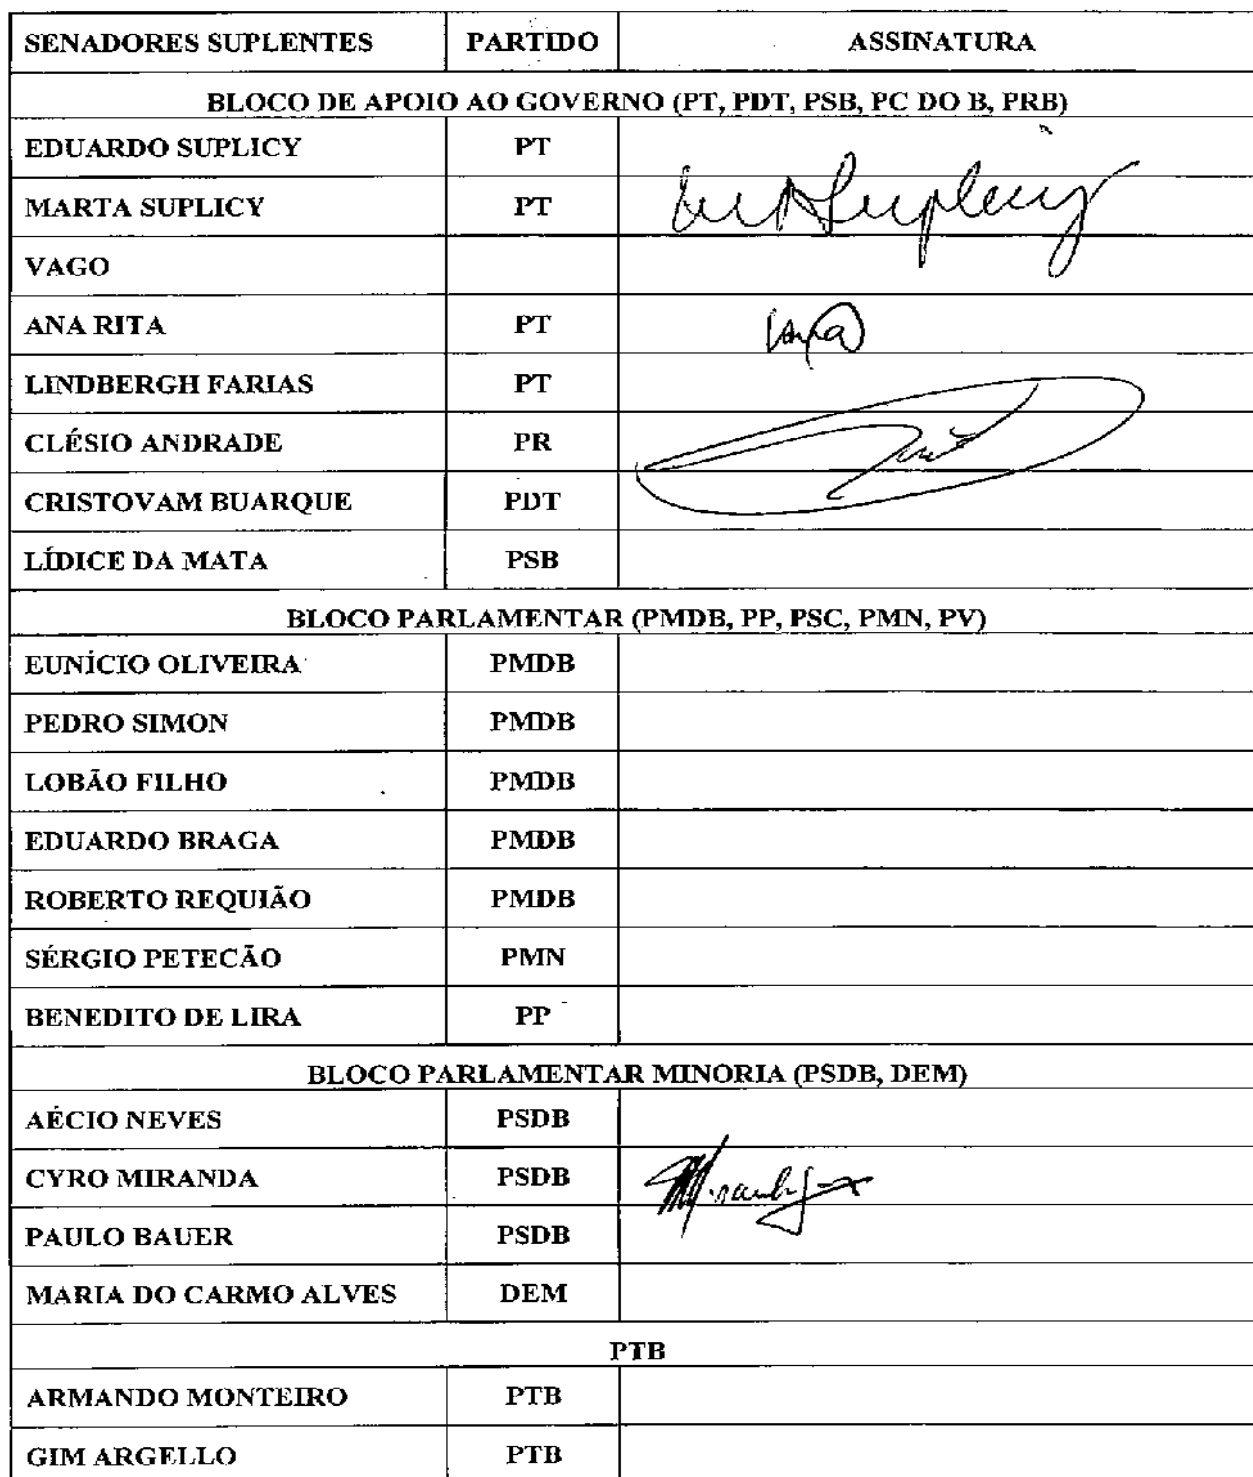 SENADORES SUPLENTES PARTIDO ASSINATURA
BLOCO DE APOIO AO GOVERNO (PT, PDT, PSB, PC DO B, PRB)
EDUARDO SUPLICY PT
MARTA SUPLICY PT Suplicy
VAGO
ANA RITA PT
LINDBERGH FARIAS PT
CLÉSIO ANDRADE PR
CRISTOVAM BUARQUE PDT
LÍDICE DA MATA PSB
BLOCO PARLAMENTAR (PMDB, PP, PSC, PMN, PV)
EUNÍCIO OLIVEIRA PMDB
PEDRO SIMON PMDB
LOBÃO FILHO PMDB
EDUARDO BRAGA PMDB
ROBERTO REQUIÃO PMDB
SÉRGIO PETECÃO PMN
BENEDITO DE LIRA PP
BLOCO PARLAMENTAR MINORIA (PSDB, DEM)
AÉCIO NEVES PSDB
CYRO MIRANDA PSDB
PAULO BAUER PSDB
MARIA DO CARMO ALVES DEM
PTB
ARMANDO MONTEIRO PTB
GIM ARGELLO PTB